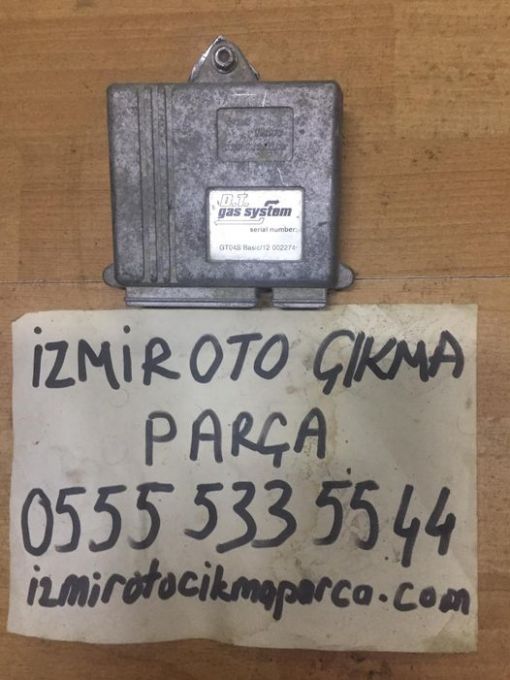 D.T.
gas system
serial number:
GT04S Basic/12 002274
İZMİR OTO ÇIKMA
PARÇA
0555 533 55 44
izmirotocikmaparca.com